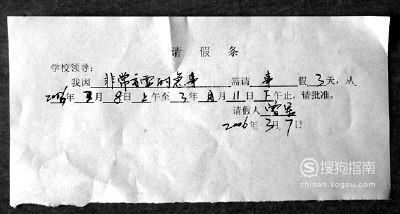 请假条
学校领导：
我因 非常重要的急事 需请 事 假 3 天，从
2006年 3 月 8 日 上 午至 3 月 11 日 下 午止，请批准。
请假人
2006年 3 月 7 日
搜狗指南
zhinan.sogou.com